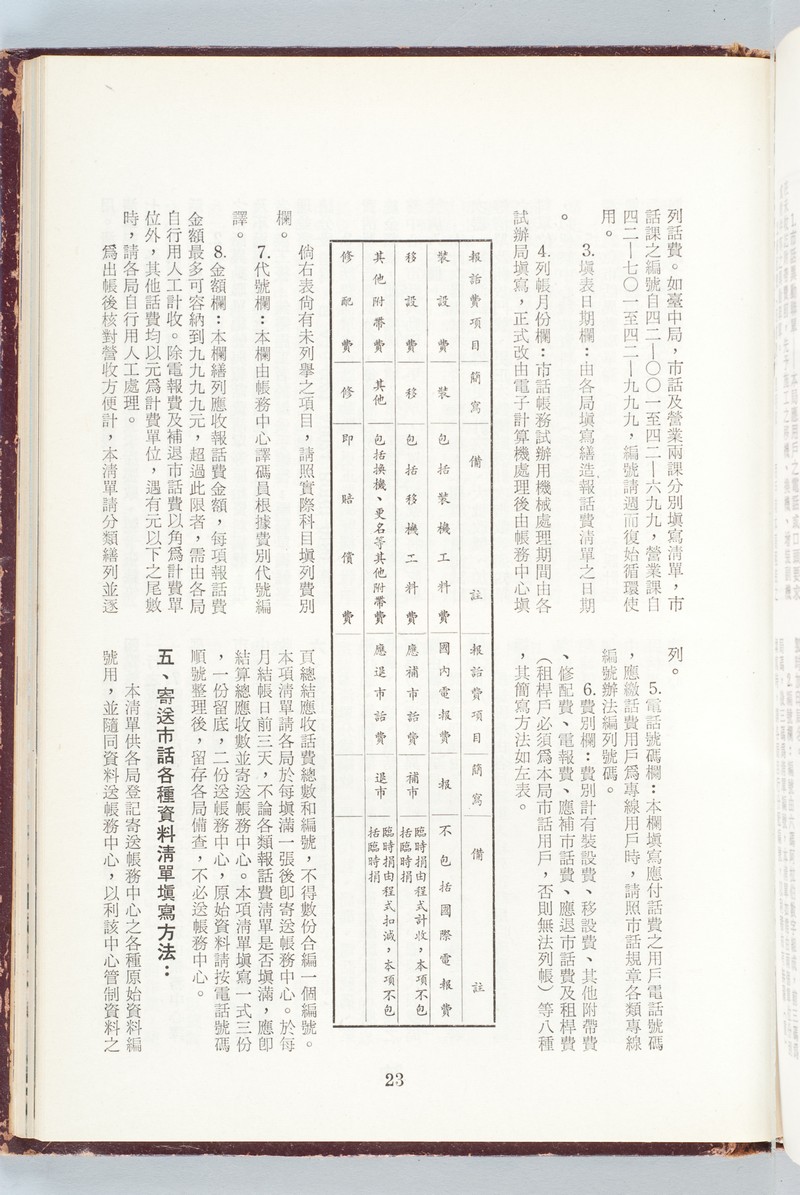 列話費。如臺中局，市話及營業兩課分別塡寫清單，市
話課之編號自四二—〇〇一至四二—六九九，營業課自
四二—七〇一至四二—九九九，編號請週而復始循環使
用。
3.塡表日期欄：由各局塡寫繕造報話費清單之日期
。
4.列帳月份欄：市話帳務試辦用機械處理期間由各
試辦局塡寫，正式改由電子計算機處理後由帳務中心塡
列。
5.電話號碼欄：本欄塡寫應付話費之用戶電話號碼
，應繳話費用戶爲專線用戶時，請照市話規章各類專線
編號辦法編列號碼。
6.費別欄：費別計有裝設費、移設費、其他附帶費
、修配費、電報費、應補市話費、應退市話費及租桿費
（租桿戶必須爲本局市話用戶，否則無法列帳）等八種
，其簡寫方法如左表。
報話費項目 簡寫 備註 報話費項目 簡寫 備註
裝設費 裝 包括裝機工料費 國內電報費 報 不包括國際電報費
移設費 移 包括移機工料費 應補市話費 補市 臨時捐由程式計收，本項不包
括臨時捐
其他附帶費 其他 包括換機、更名等其他附帶費 應退市話費 退市 臨時捐由程式扣減，本項不包
括臨時捐
修配費 修 即賠償費
倘右表尙有未列舉之項目，請照實際科目塡列費別
欄。
7.代號欄：本欄由帳務中心譯碼員根據費別代號編
譯。
8.金額欄：本欄繕列應收報話費金額，每項報話費
金額最多可容納到九九九九元，超過此限者，需由各局
自行用人工計收。除電報費及補退市話費以角爲計費單
位外，其他話費均以元爲計費單位，遇有元以下之尾數
時，請各局自行用人工處理。
爲出帳後核對營收方便計，本清單請分類繕列並逐
頁總結應收話費總數和編號，不得數份合編一個編號。
本項清單請各局於每塡滿一張後卽寄送帳務中心。於每
月結帳日前三天，不論各類報話費清單是否塡滿，應卽
結算總應收數並寄送帳務中心。本項清單塡寫一式三份
，一份留底，二份送帳務中心，原始資料請按電話號碼
順號整理後，留存各局備查，不必送帳務中心。
五、寄送市話各種資料清單塡寫方法：
本清單供各局登記寄送帳務中心之各種原始資料編
號用，並隨同資料送帳務中心，以利該中心管制資料之
23